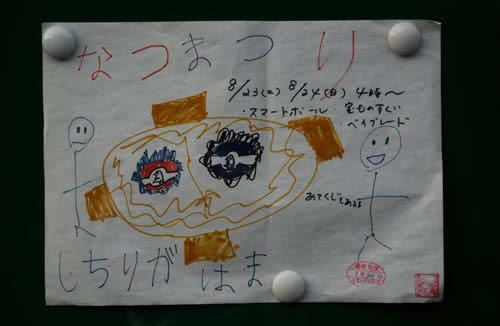 なつまつり
8/23(土) 8/24(日) 4時〜
・スマートボール ・宝ものすくい
・ベイブレード
あてくじもあるよ
しちりがはま